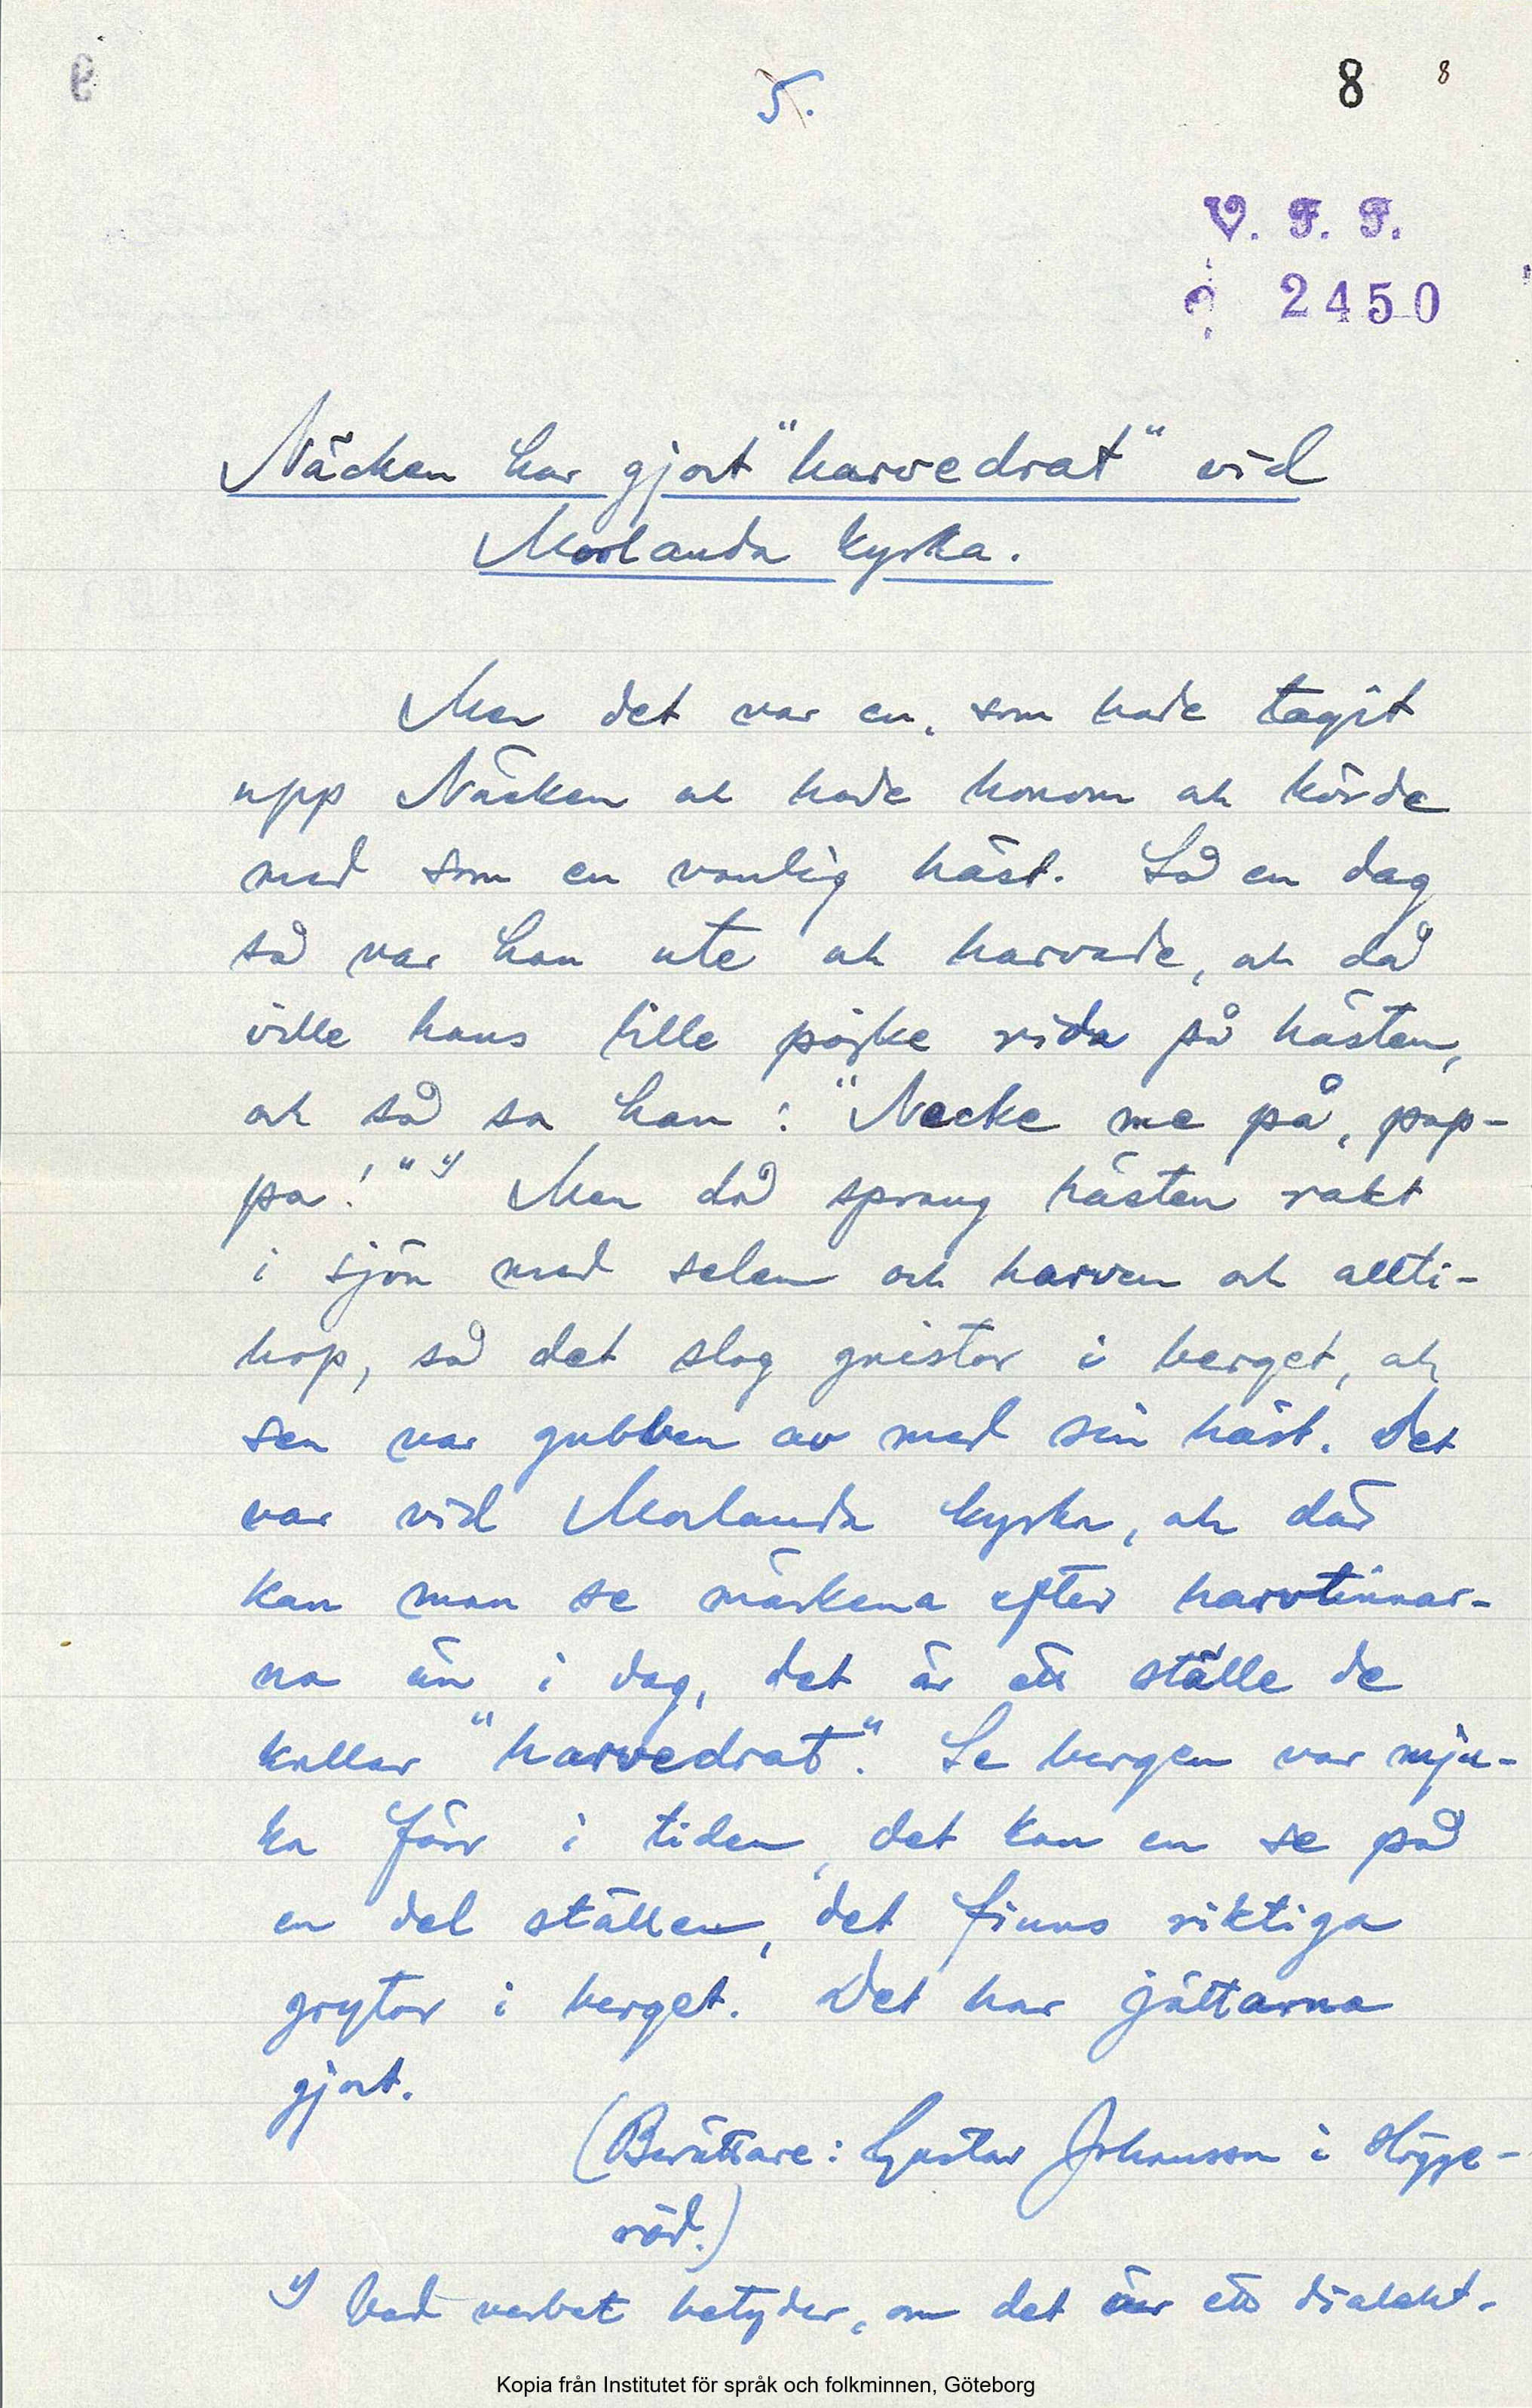 5.
8 8
V. F. F.
2450
Näcken har gjort "harvedrat" vid
Morlanda kyrka.
Men det var en, som hade tagit
upp Näcken och hade honom och körde
med som en vanlig häst. Så en dag
så var han ute och harvade, och då
ville hans lille pojke rida på hästen,
och så sa han: "Necke me på, pap-
pa!" 1) Men då sprang hästen rakt
i sjön med selen och harven och allti-
hop, så det slog gnistor i berget, och
sen var gubben av med sin häst. Det
var vid Morlanda kyrka, och där
kan man se märkena efter harvtinnar-
na än i dag, det är ett ställe de
kallar "harvedrat". Se bergen var mju-
ka förr i tiden, det kan en se på
en del ställen, det finns riktiga
grytor i berget. Det har jättarna
gjort.
(Berättare: Gustav Johansson i Högge-
röd.)
1) Vad verbet betyder, om det är ett dialekt-
Kopia från Institutet för språk och folkminnen, Göteborg